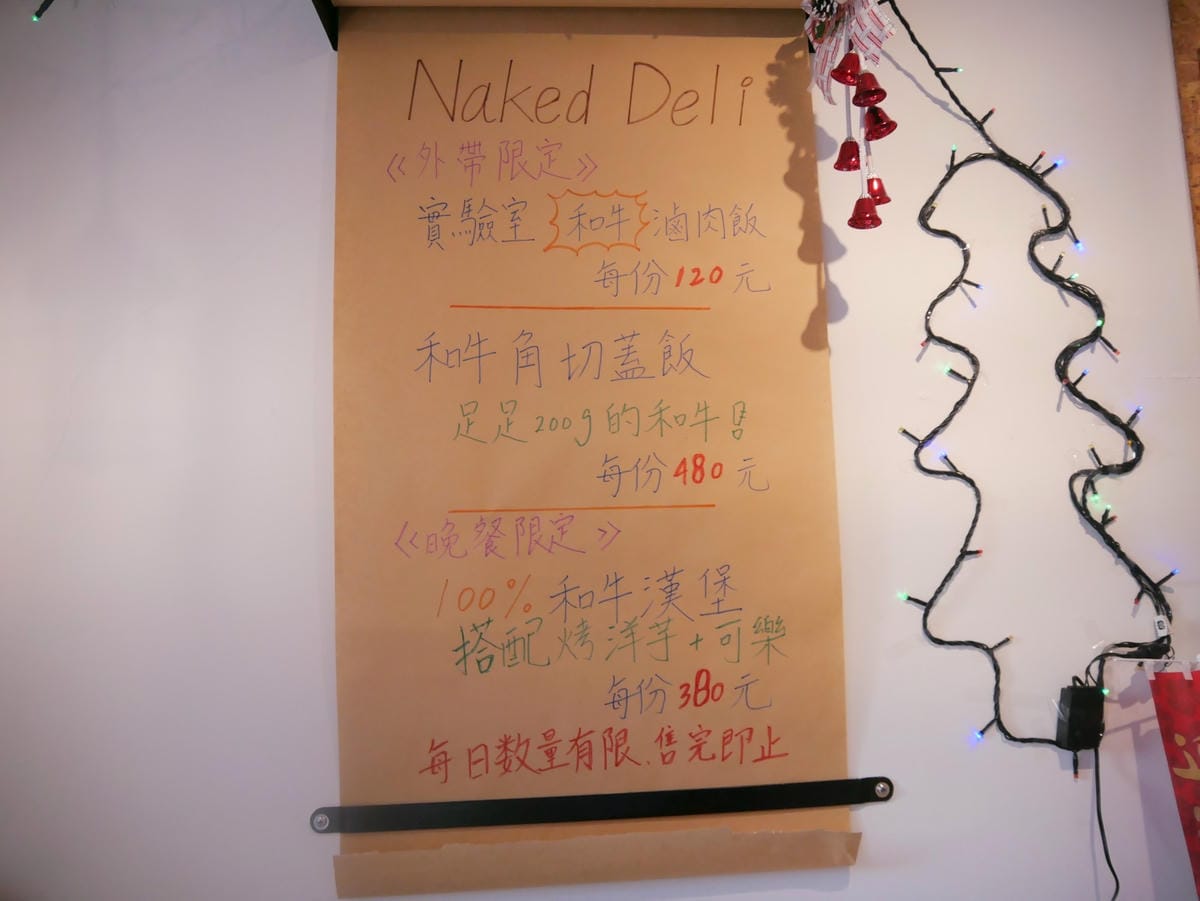 Naked Deli
《外帶限定》
實驗室 和牛 滷肉飯
每份120元
和牛角切蓋飯
足足200g的和牛!!
每份480元
《晚餐限定》
100%和牛漢堡
搭配烤洋芋+可樂
每份380元
每日数量有限.售完即止